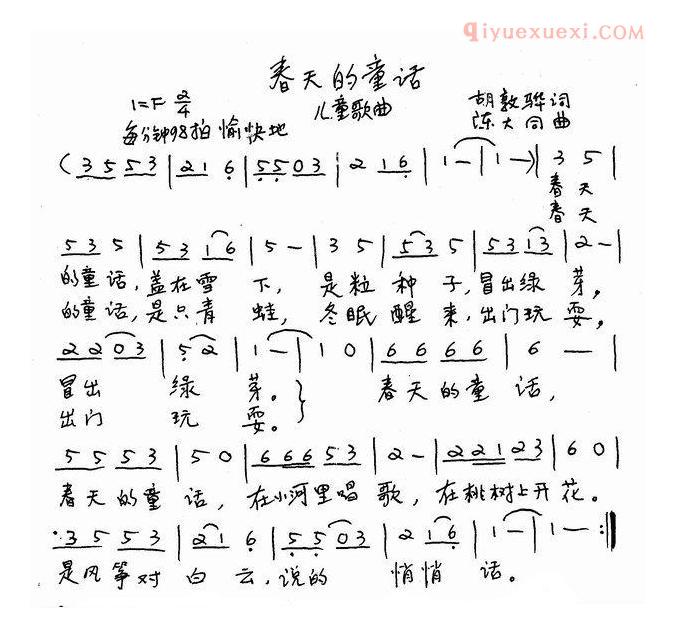 qiyuexuexi.com
春天的童话
1=F 2/4
儿童歌曲
胡敦骅词
每分钟98拍 愉快地
陈大同曲
(3 5 5 3 | 2 1 6 | 5 5 0 3 | 2 1 6 | 1 — | 1 —) | 3 5 |
春天
春天
5 3 5 | 5 3 1 6 | 5 — | 3 5 | 5 3 5 | 5 3 1 3 | 2 — |
的童话,盖在雪 下, 是粒 种 子,冒出绿 芽。
的童话,是只青 蛙, 冬眠 醒 来,出门玩 耍。
2 2 0 3 | 5 2 | 1 — | 1 0 | 6 6 6 6 | 6 — |
冒出 绿 芽。} 春天的童 话,
出门 玩 耍。
5 5 5 3 | 5 0 | 6 6 6 5 3 | 2 — | 2 2 1 2 3 | 6 0 |
春天的童 话, 在小河里唱 歌, 在桃树上开 花。
3 5 5 3 | 2 1 6 | 5 5 0 3 | 2 1 6 | 1 — | 1 — :||
是风筝对 白 云,说的 悄悄 话。